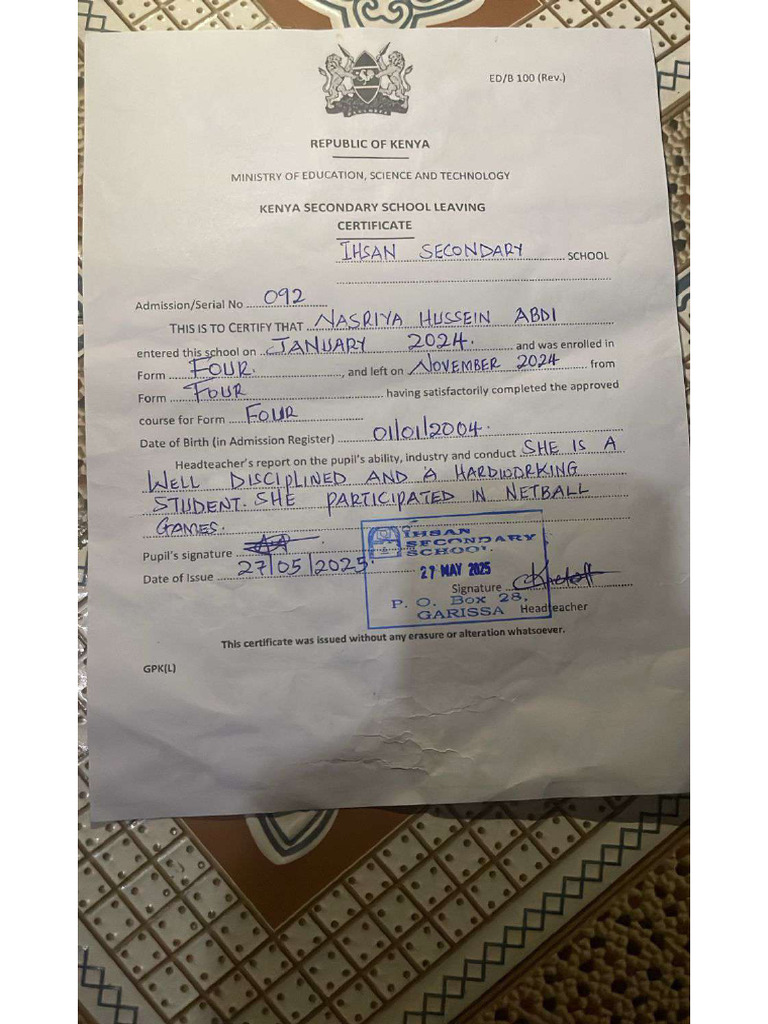 ED/B 100 (Rev.)
REPUBLIC OF KENYA
MINISTRY OF EDUCATION, SCIENCE AND TECHNOLOGY
KENYA SECONDARY SCHOOL LEAVING
CERTIFICATE
IHSAN SECONDARY SCHOOL
Admission/Serial No 092
THIS IS TO CERTIFY THAT NASRIYA HUSSEIN ABDI
entered this school on JANUARY 2024. and was enrolled in
Form FOUR. , and left on NOVEMBER 2024 from
Form FOUR having satisfactorily completed the approved
course for Form FOUR
Date of Birth (in Admission Register) 01/01/2004.
Headteacher's report on the pupil's ability, industry and conduct SHE IS A
WELL DISCIPLINED AND A HARDWORKING
STUDENT. SHE PARTICIPATED IN NETBALL
GAMES.
Pupil's signature
Date of Issue 27/05/2025.
IHSAN
SECONDARY
SCHOOL.
27 MAY 2025
Signature
P. O. Box 28.
GARISSA
Headteacher
This certificate was issued without any erasure or alteration whatsoever.
GPK(L)